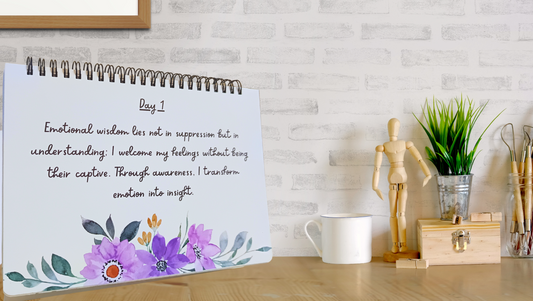 Day 1
Emotional wisdom lies not in suppression but in
understanding; I welcome my feelings without being
their captive. Through awareness, I transform
emotion into insight.